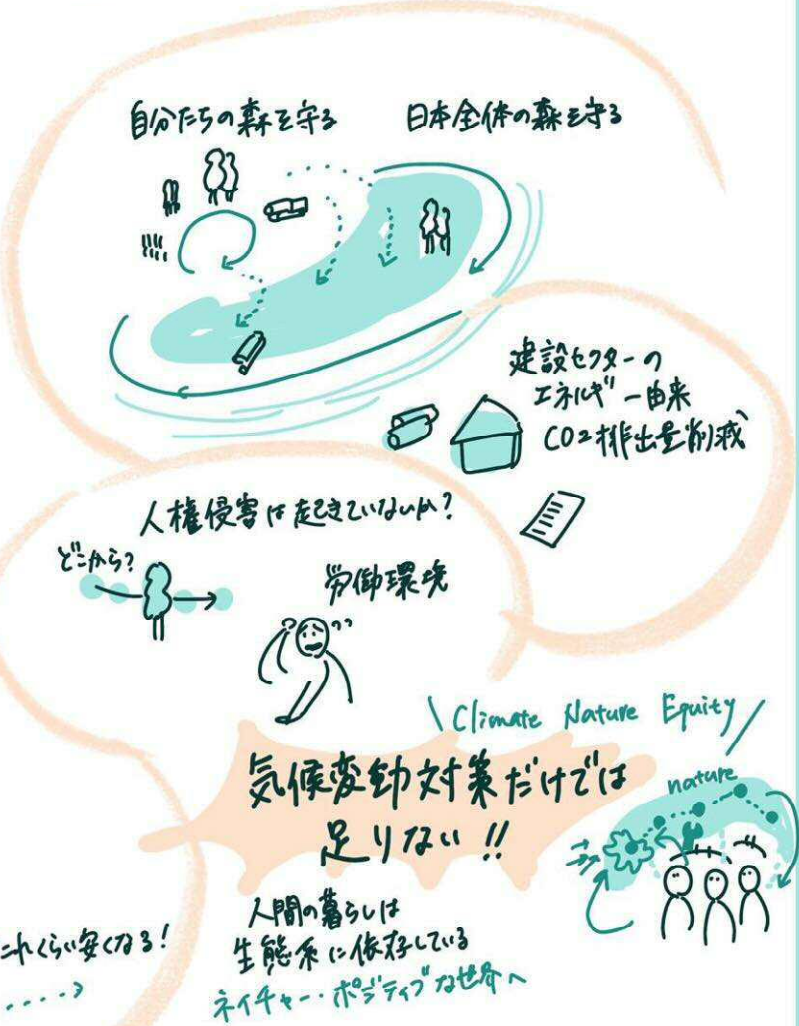 自分たちの森を守る
日本全体の森を守る
建設セクターの
エネルギー由来
CO2排出量削減
人権侵害は起きていないか?
どこから?
労働環境
\ Climate Nature Equity /
気候変動対策だけでは
足りない!!
nature
これくらい安くなる!
人間の暮らしは
生態系に依存している
ネイチャー・ポジティブな世界へ